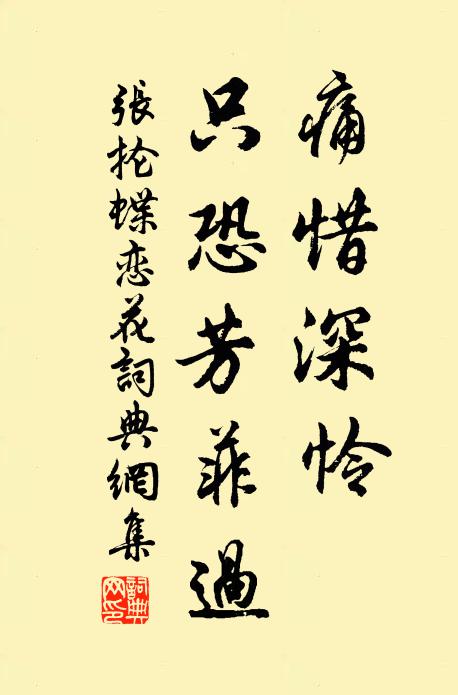 痛惜深怜
只恐芳菲過
張抡蝶恋花詞典網集
詞典網印